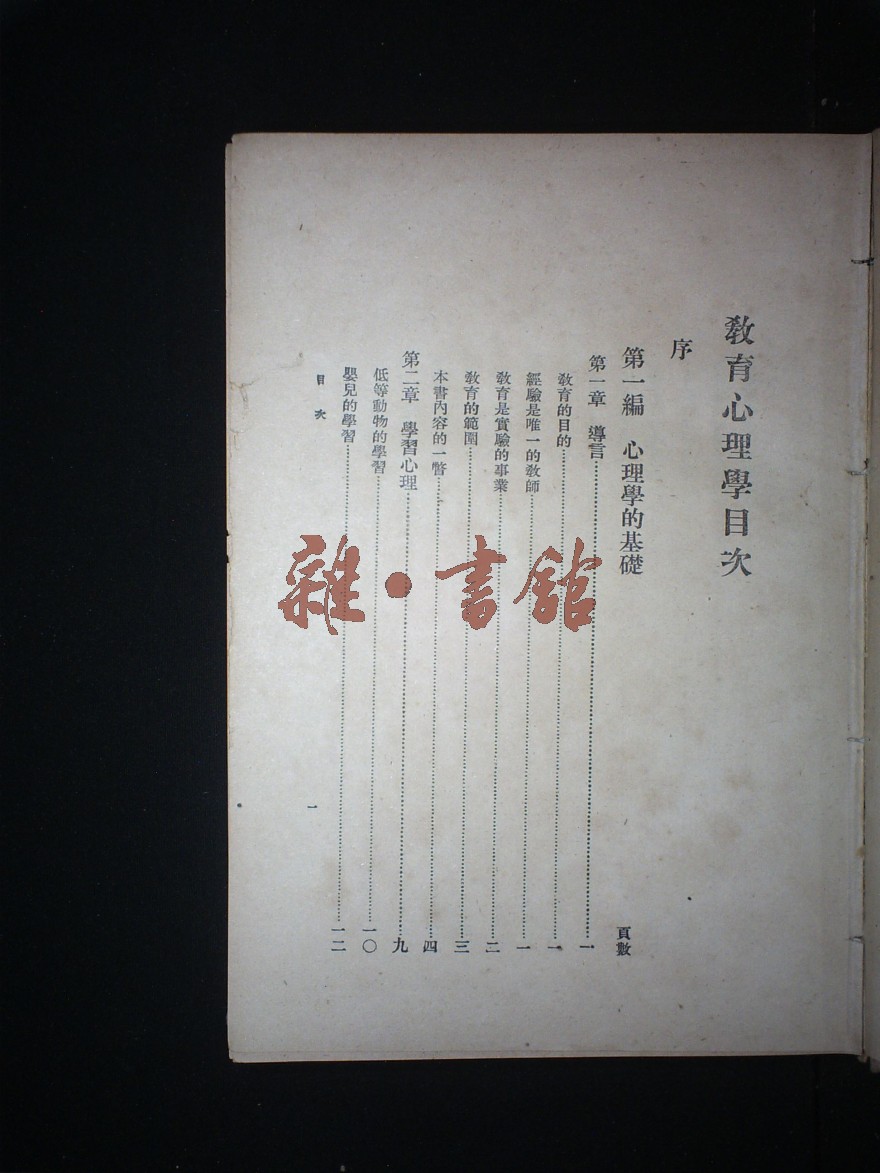 教育心理學目次
序
第一編　心理學的基礎　頁數
第一章　導言……一
教育的目的……一
經驗是唯一的教師……一
教育是實驗的事業……二
教育的範圍……三
本書內容的一瞥……四
第二章　學習心理……九
低等動物的學習……一〇
嬰兒的學習……一二
目次　一
雜・書館